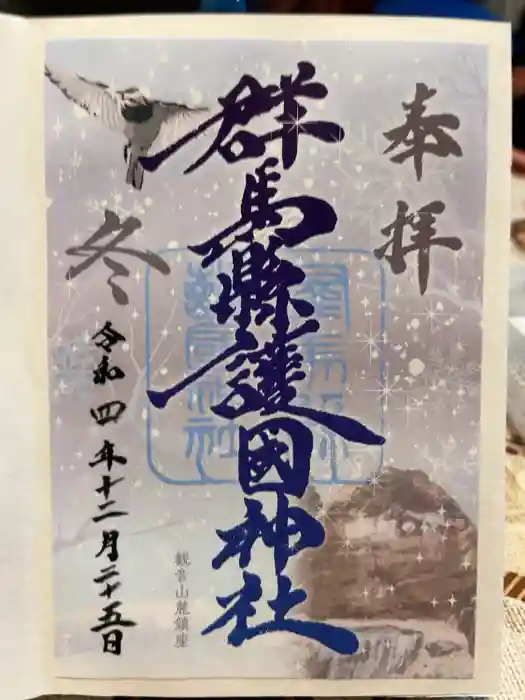 奉拝
群馬縣護國神社
冬
令和四年十二月二十五日
観音山麓鎮座